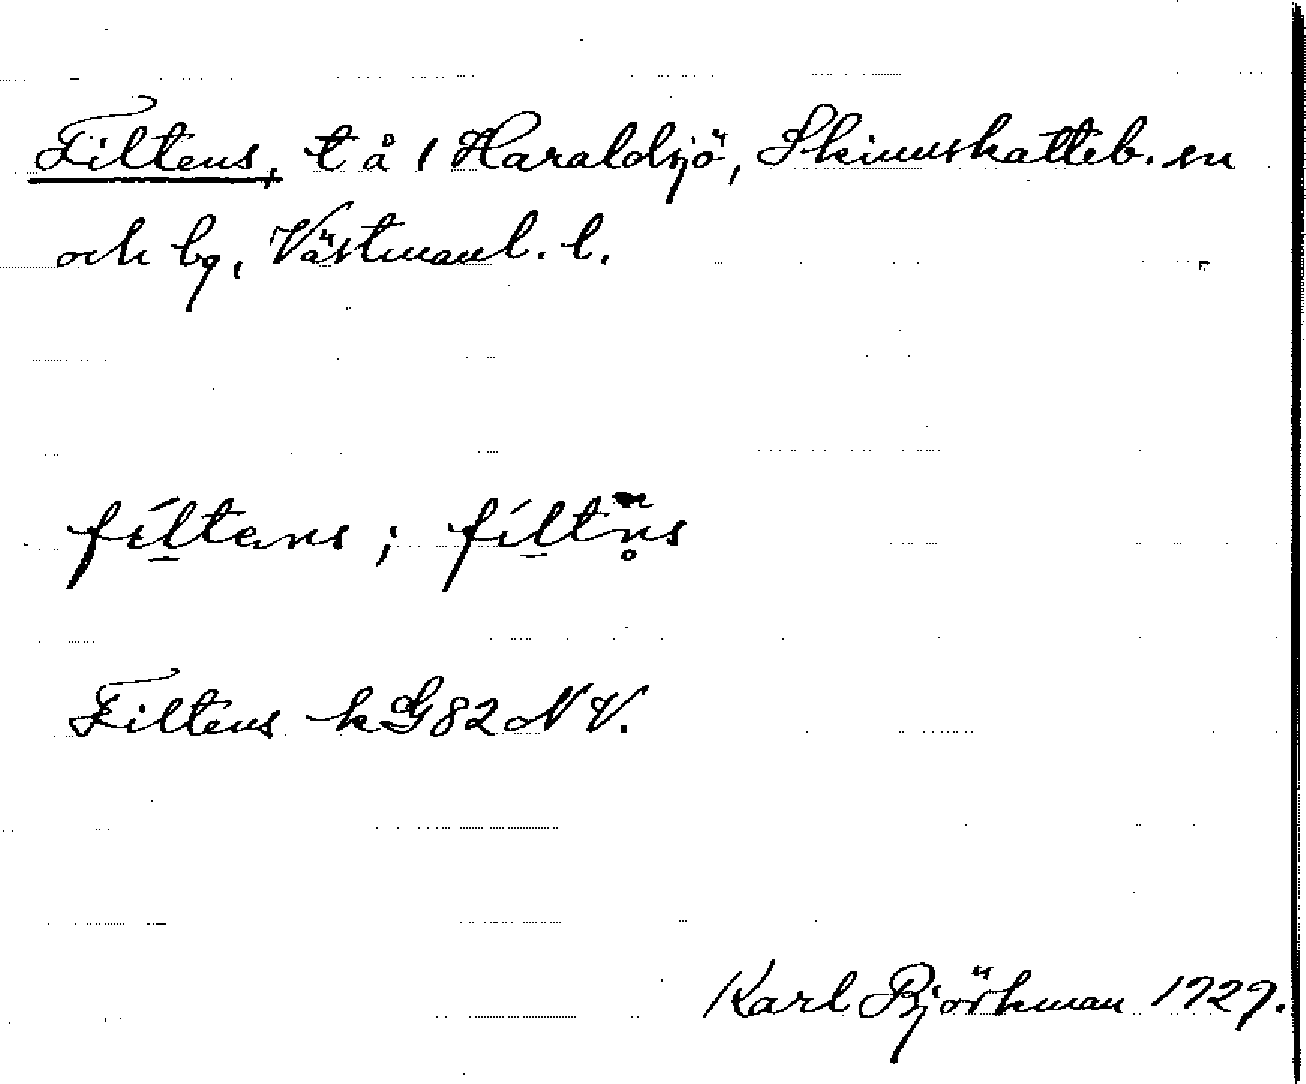 Filtens, t å 1 Haraldsjö, Skinnskatteb. sn
och bg, Västmanl. l.
fíltens ; fíltn̥s
Filtens k G 82 N V.
Karl Björkman 1929.